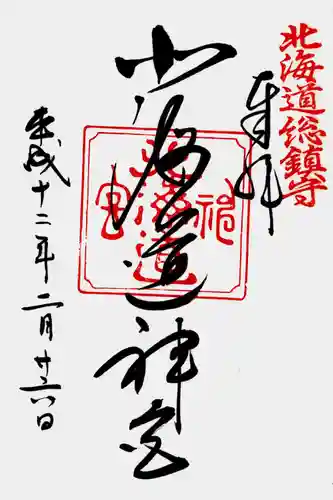 北海道総鎮守
奉拝
北海道神宮
北海道神宮
平成十二年二月廿六日